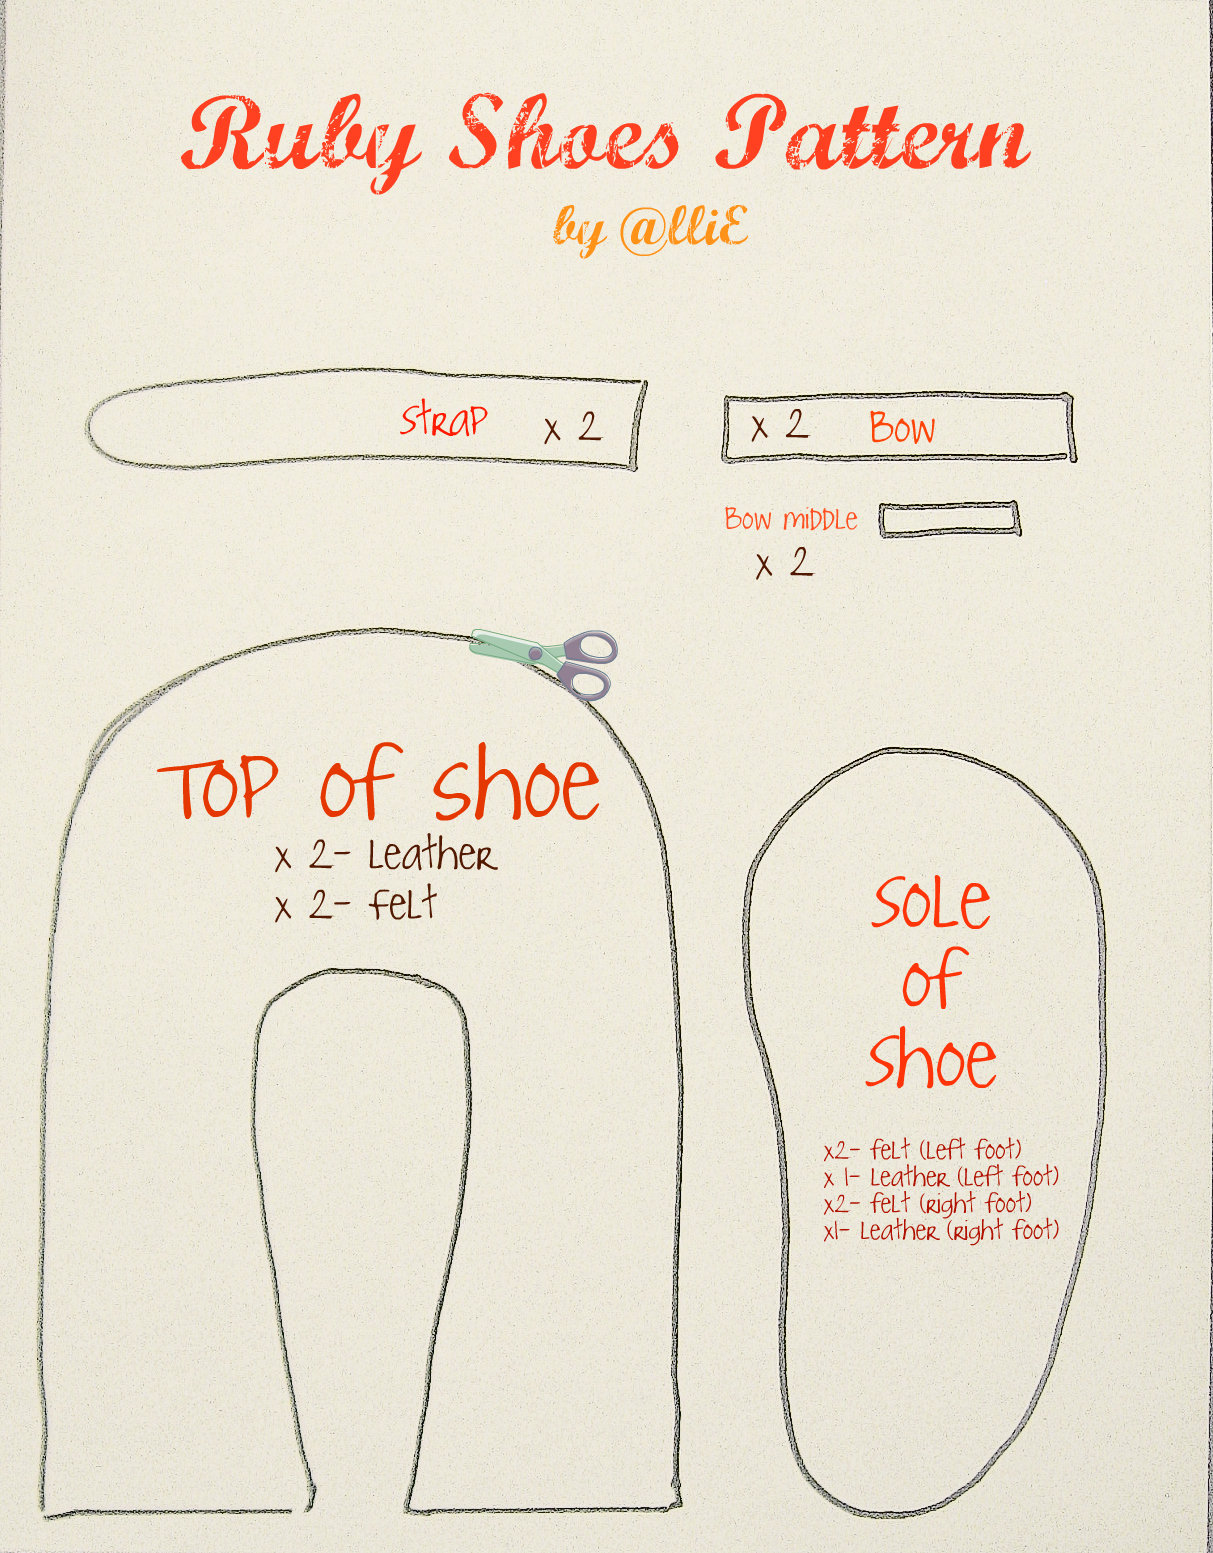 Ruby Shoes Pattern
by @lliE
Strap x 2
x 2 Bow
Bow middle
x 2
Top of shoe
x 2- Leather
x 2- felt
Sole
of
shoe
x2- felt (Left foot)
x 1- Leather (Left foot)
x2- felt (right foot)
x1- Leather (right foot)